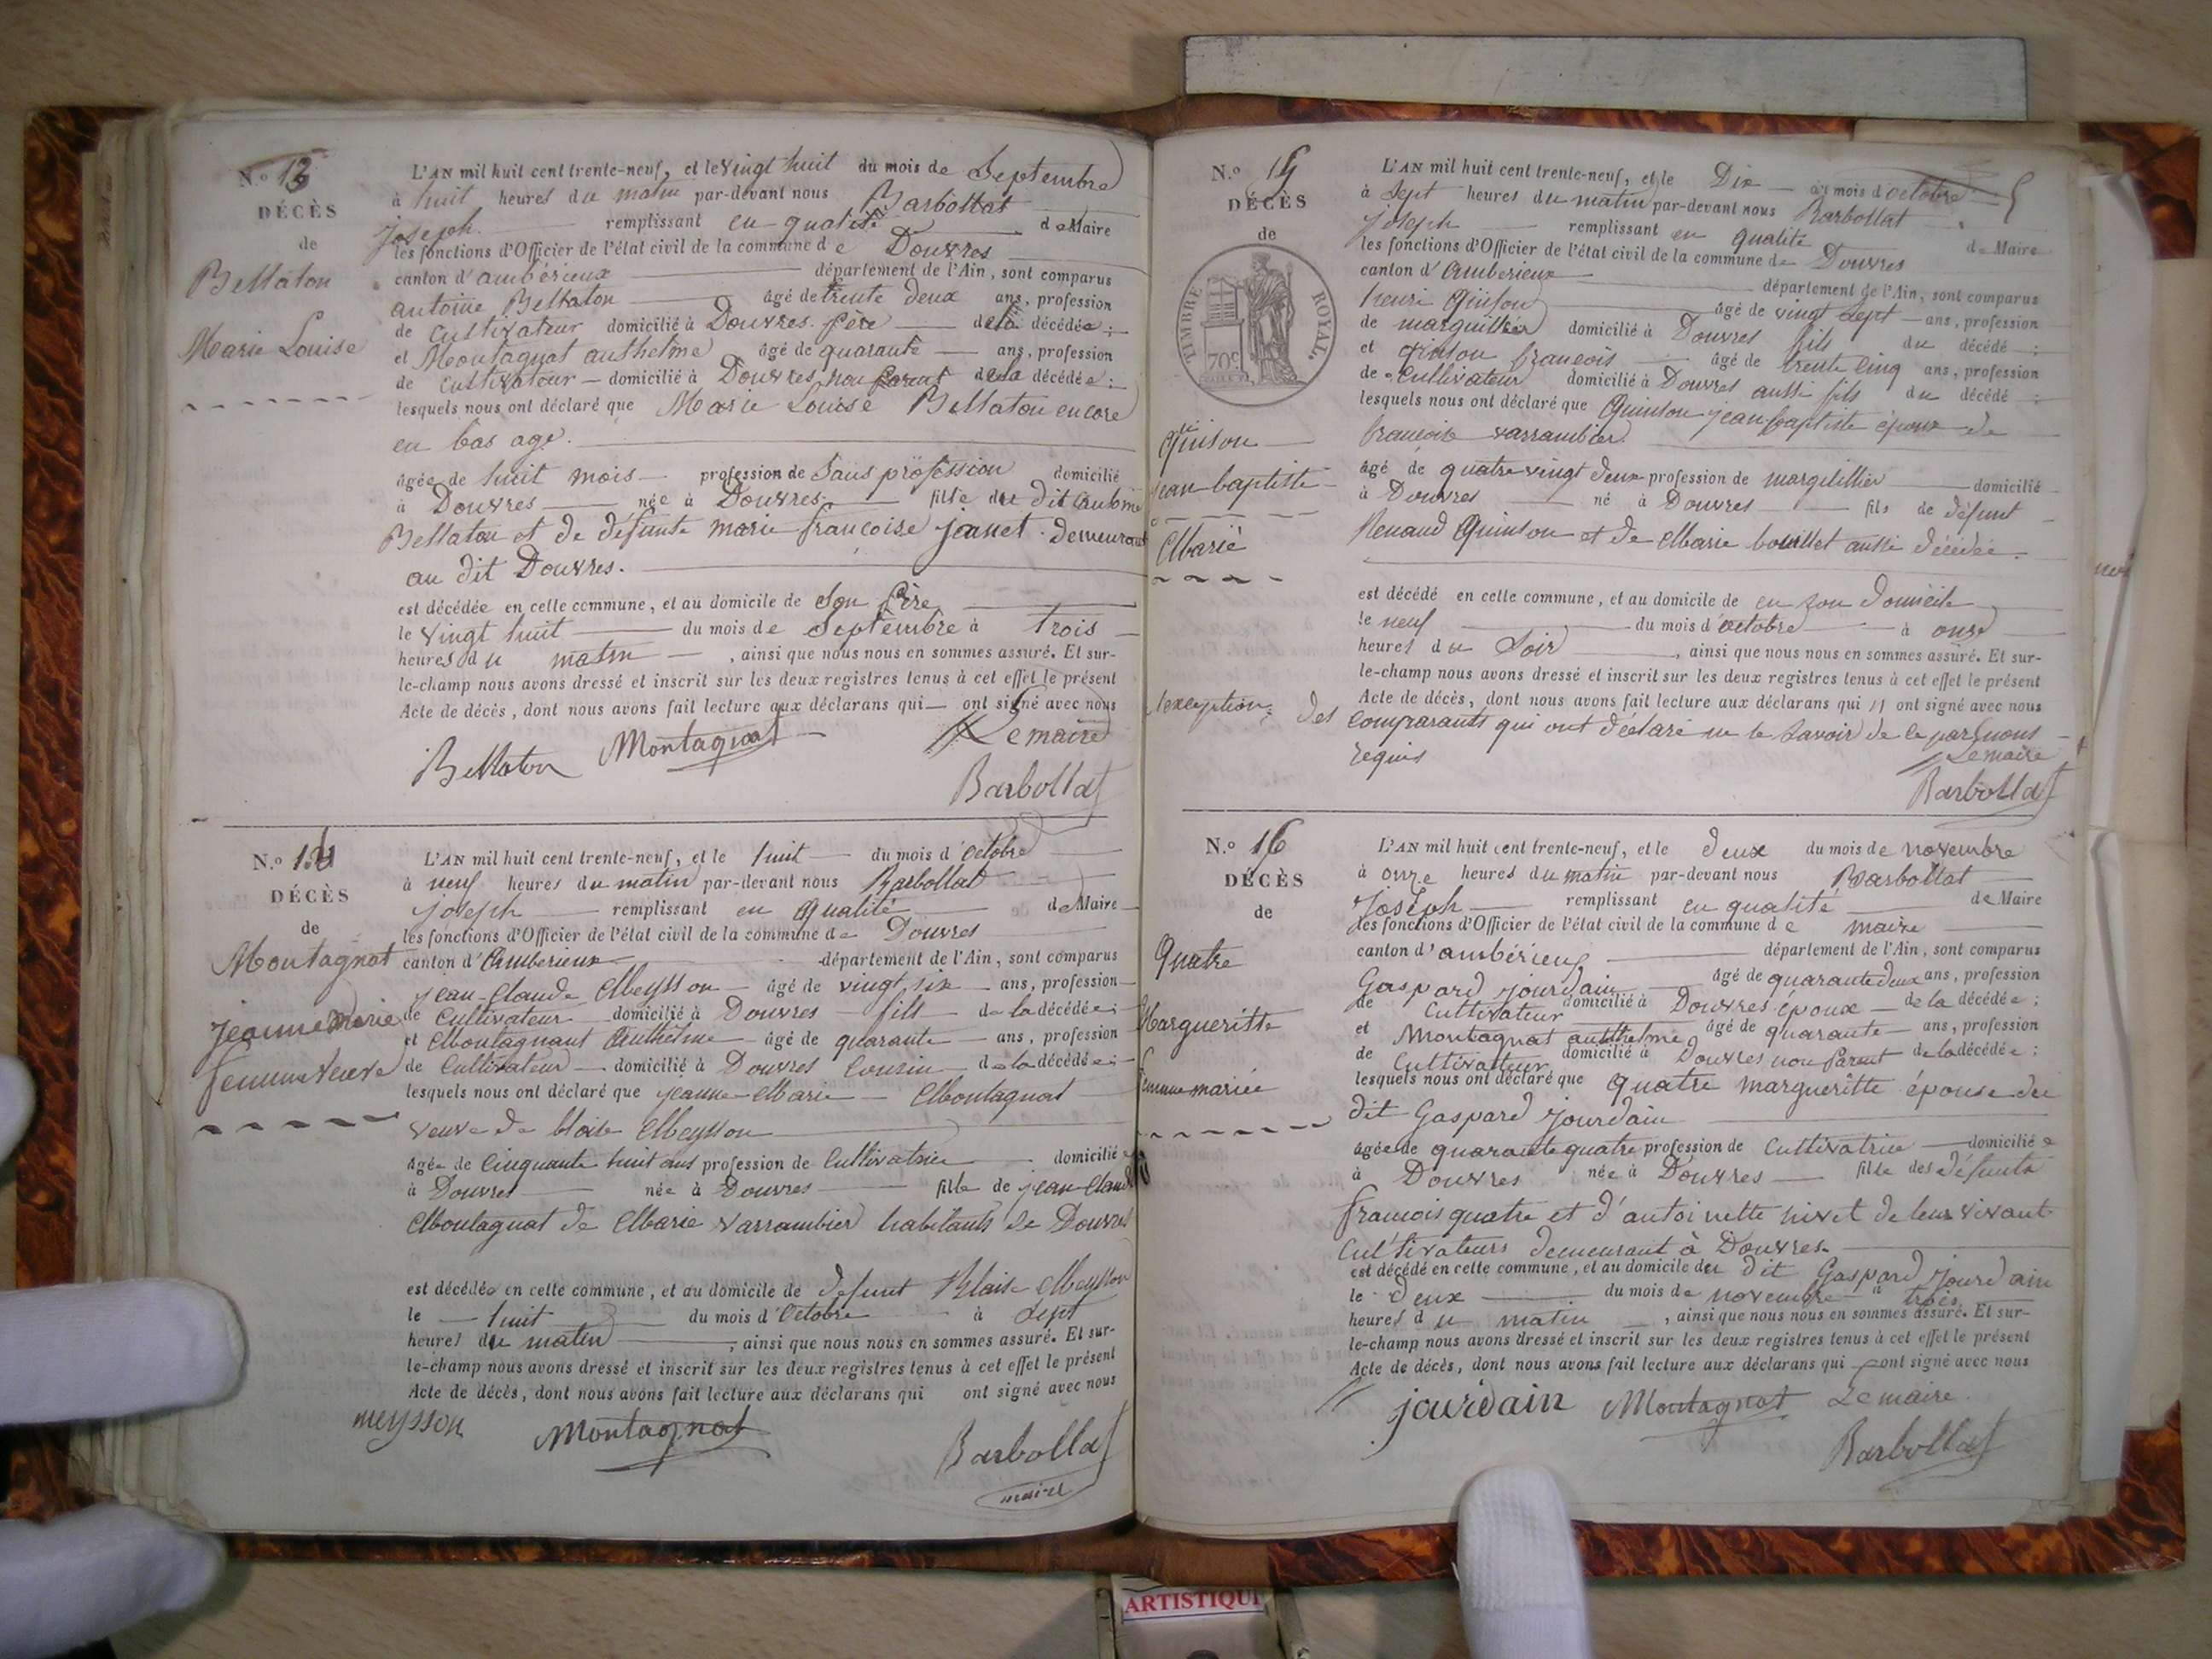 N.o 13
DÉCÈS
de
Bellaton
Marie Louise
L'AN mil huit cent trente-neuf, et le vingt huit du mois de Septembre
à huit heures du matin par-devant nous Barbollat
joseph remplissant en qualité de Maire
les fonctions d'Officier de l'état civil de la commune de Douvres
canton d'ambérieux département de l'Ain, sont comparus
antoine Bellaton âgé de trente deux ans, profession
de Cultivateur domicilié à Douvres père de la décédée;
et Montagnat anthelme âgé de quarante ans, profession
de Cultivateur domicilié à Douvres non parent de la décédée;
lesquels nous ont déclaré que Marie Louise Bellaton encore
en bas age.
âgée de huit mois profession de Sans profession domicilié
à Douvres née à Douvres fille du dit antoine
Bellaton et de défunte marie françoise jeanet demeurant
au dit Douvres.
est décédée en cette commune, et au domicile de Son père
le vingt huit du mois de Septembre à trois
heures du matin, ainsi que nous nous en sommes assuré. Et sur-
le-champ nous avons dressé et inscrit sur les deux registres tenus à cet effet le présent
Acte de décès, dont nous avons fait lecture aux déclarans qui ont signé avec nous
Bellaton Montagnat Le maire
Barbollat
N.o 14
DÉCÈS
de
Montagnat
jeanne Marie
femme veuve
L'AN mil huit cent trente-neuf, et le huit du mois d'octobre
à neuf heures du matin par-devant nous Barbollat
joseph remplissant en qualité de Maire
les fonctions d'Officier de l'état civil de la commune de Douvres
canton d'Amberieux département de l'Ain, sont comparus
jean-Claude Meysson âgé de vingt six ans, profession
de Cultivateur domicilié à Douvres fils de la décédée;
et Montagnant Anthelme âgé de quarante ans, profession
de Cultivateur domicilié à Douvres Cousin de la décédée;
lesquels nous ont déclaré que jeanne-Marie Montagnat
veuve de blaise Meysson
âgée de Cinquante huit ans profession de Cultivatrice domiciliée
à Douvres née à Douvres fille de jean Claude
Montagnat de Marie Varrambier habitants de Douvres
est décédée en cette commune, et au domicile de defunt Blaise Meysson
le huit du mois d'Octobre à Sept
heures du matin, ainsi que nous nous en sommes assuré. Et sur-
le-champ nous avons dressé et inscrit sur les deux registres tenus à cet effet le présent
Acte de décès, dont nous avons fait lecture aux déclarans qui ont signé avec nous
meysson Montagnat
Barbollat
maire
N.o 15
DÉCÈS
de
TIMBRE ROYAL.
70c
Quinson
jean-baptiste
Marié
L'AN mil huit cent trente-neuf, et le Dix du mois d'octobre
à Sept heures du matin par-devant nous Barbollat
joseph remplissant en qualité de Maire
les fonctions d'Officier de l'état civil de la commune de Douvres
canton d'Amberieux département de l'Ain, sont comparus
henri Quinson âgé de vingt Sept ans, profession
de marguillier domicilié à Douvres fils du décédé;
et Quinson françois âgé de trente cinq ans, profession
de Cultivateur domicilié à Douvres aussi fils du décédé;
lesquels nous ont déclaré que Quinson jean baptiste époux de
françoise varrambier.
âgé de quatre vingt deux profession de margilillier domicilié
à Douvres né à Douvres fils de défunt
Renaud Quinson et de Marie bouillet aussi décédée.
est décédé en cette commune, et au domicile de en son domicile
le neuf du mois d'octobre à onze
heures du Soir, ainsi que nous nous en sommes assuré. Et sur-
le-champ nous avons dressé et inscrit sur les deux registres tenus à cet effet le présent
Acte de décès, dont nous avons fait lecture aux déclarans qui ont signé avec nous
l'exception des comparants qui ont déclaré ne le Savoir de ce par nous
requis
Le maire
Barbollat
N.o 16
DÉCÈS
de
Quatre
Margueritte
femme mariée
L'AN mil huit cent trente-neuf, et le deux du mois de novembre
à onze heures du matin par-devant nous Barbollat
Joseph remplissant en qualité de Maire
les fonctions d'Officier de l'état civil de la commune de maire
canton d'ambérieux département de l'Ain, sont comparus
Gaspard jourdain âgé de quarante deux ans, profession
de Cultivateur domicilié à Douvres époux de la décédée;
et Montagnat anthelme âgé de quarante ans, profession
de Cultivateur domicilié à Douvres non parent de la décédée;
lesquels nous ont déclaré que Quatre margueritte épouse du
dit Gaspard jourdain
âgée de quarante quatre profession de Cultivatrice domiciliée
à Douvres née à Douvres fille des défunts
françois quatre et d'antoinette nivet de leur vivant
Cultivateurs demeurant à Douvres.
est décédé en cette commune, et au domicile du dit Gaspard jourdain
le deux du mois de novembre à trois
heures du matin, ainsi que nous nous en sommes assuré. Et sur-
le-champ nous avons dressé et inscrit sur les deux registres tenus à cet effet le présent
Acte de décès, dont nous avons fait lecture aux déclarans qui ont signé avec nous
jourdain Montagnat Le maire
Barbollat
ARTISTIQUE